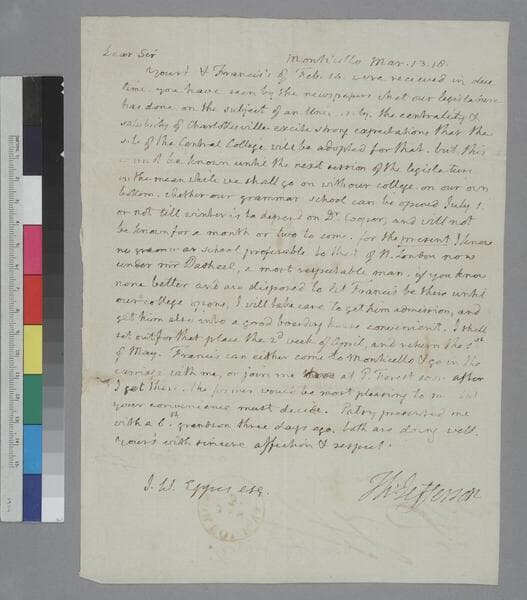 Dear Sir
Monticello Mar. 13. 18.
Yours & Francis's of Feb. 14. were recieved in due
time. you have seen by the newspapers what our legislature
has done on the subject of an University. the centrality &
salubrity of Charlottesville excite strong expectations that the
site of the Central College will be adopted for that. but this
will not be known until the next session of the legislature
in the mean while we shall go on with our college on our own
bottom. whether our grammar school can be opened July 1.
or not till winter is to depend on Dr. Cooper, and will not
be known for a month or two to come. for the present I know
no grammar school preferable to that of N. London now
under mr Dasheel, a most respectable man. if you know
none better and are disposed to let Francis be there until
our college opens, I will take care to get him admission, and
get him also into a good boarding house convenient. I shall
set out for that place the 2d week of April, and return the 1st
of May. Francis can either come to Monticello & go in the
carriage with me, or join me at P. Forest soon after
I get there. the former would be most pleasing to me but
your convenience must decide. Patsy presented me
with a 6th. grandson three days ago. both are doing well.
yours with sincere affection & respect.
J. W. Eppes esq.
Th: Jefferson